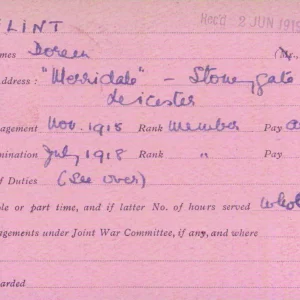 FLINT Rec'd 2 JUN 1919
mes Doreen (Mr.,
ddress: "Merridale" - Stoneygate
Leicester
agement Nov. 1915 Rank Member Pay
mination July 1918 Rank " Pay
f Duties (See over)
ole or part time, and if latter No. of hours served whol
agements under Joint War Committee, if any, and where
arded